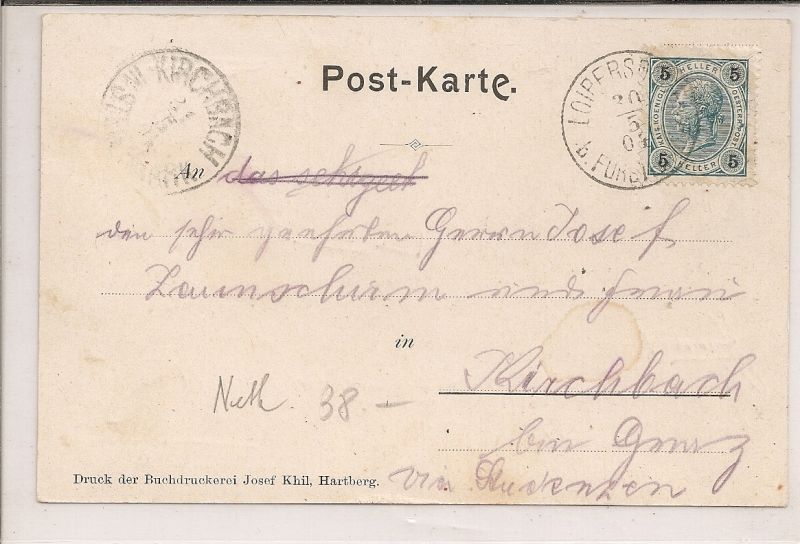 Post-Karte.
KIRCHBACH
LOIPERSD
20
5
b. FÜRST
5 HELLER 5
KAIS. KOENIGL. OESTERR. POST.
5 HELLER 5
An das
den sehr geehrten Herrn Josef
und Frau
in
Kirchbach
bei Graz
via Studenzen
38 —
Druck der Buchdruckerei Josef Khil, Hartberg.